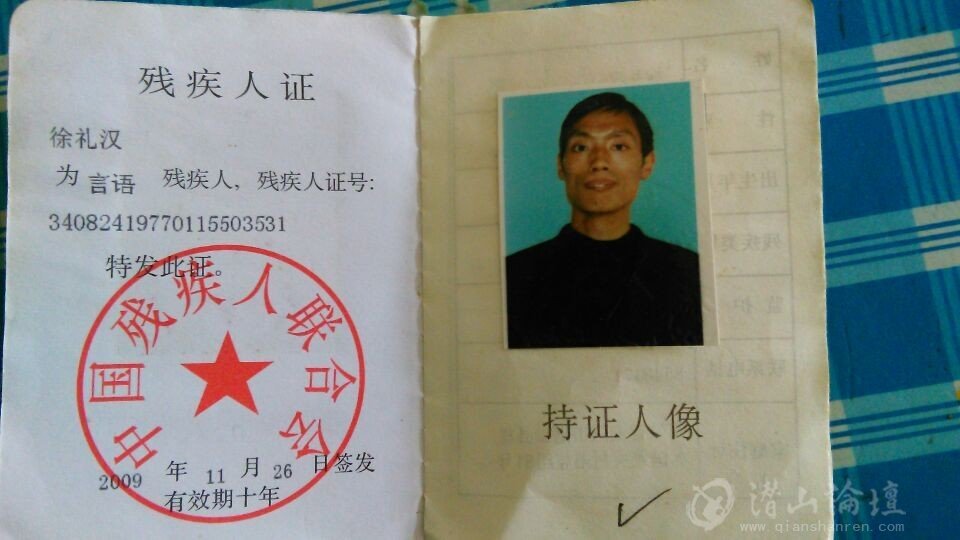 残疾人证
徐礼汉
为 言语 残疾人，残疾人证号：
34082419770115503531
特发此证。
中国残疾人联合会
2009 年 11 月 26 日签发
有效期十年
持证人像
潜山论坛
www.qianshanren.com